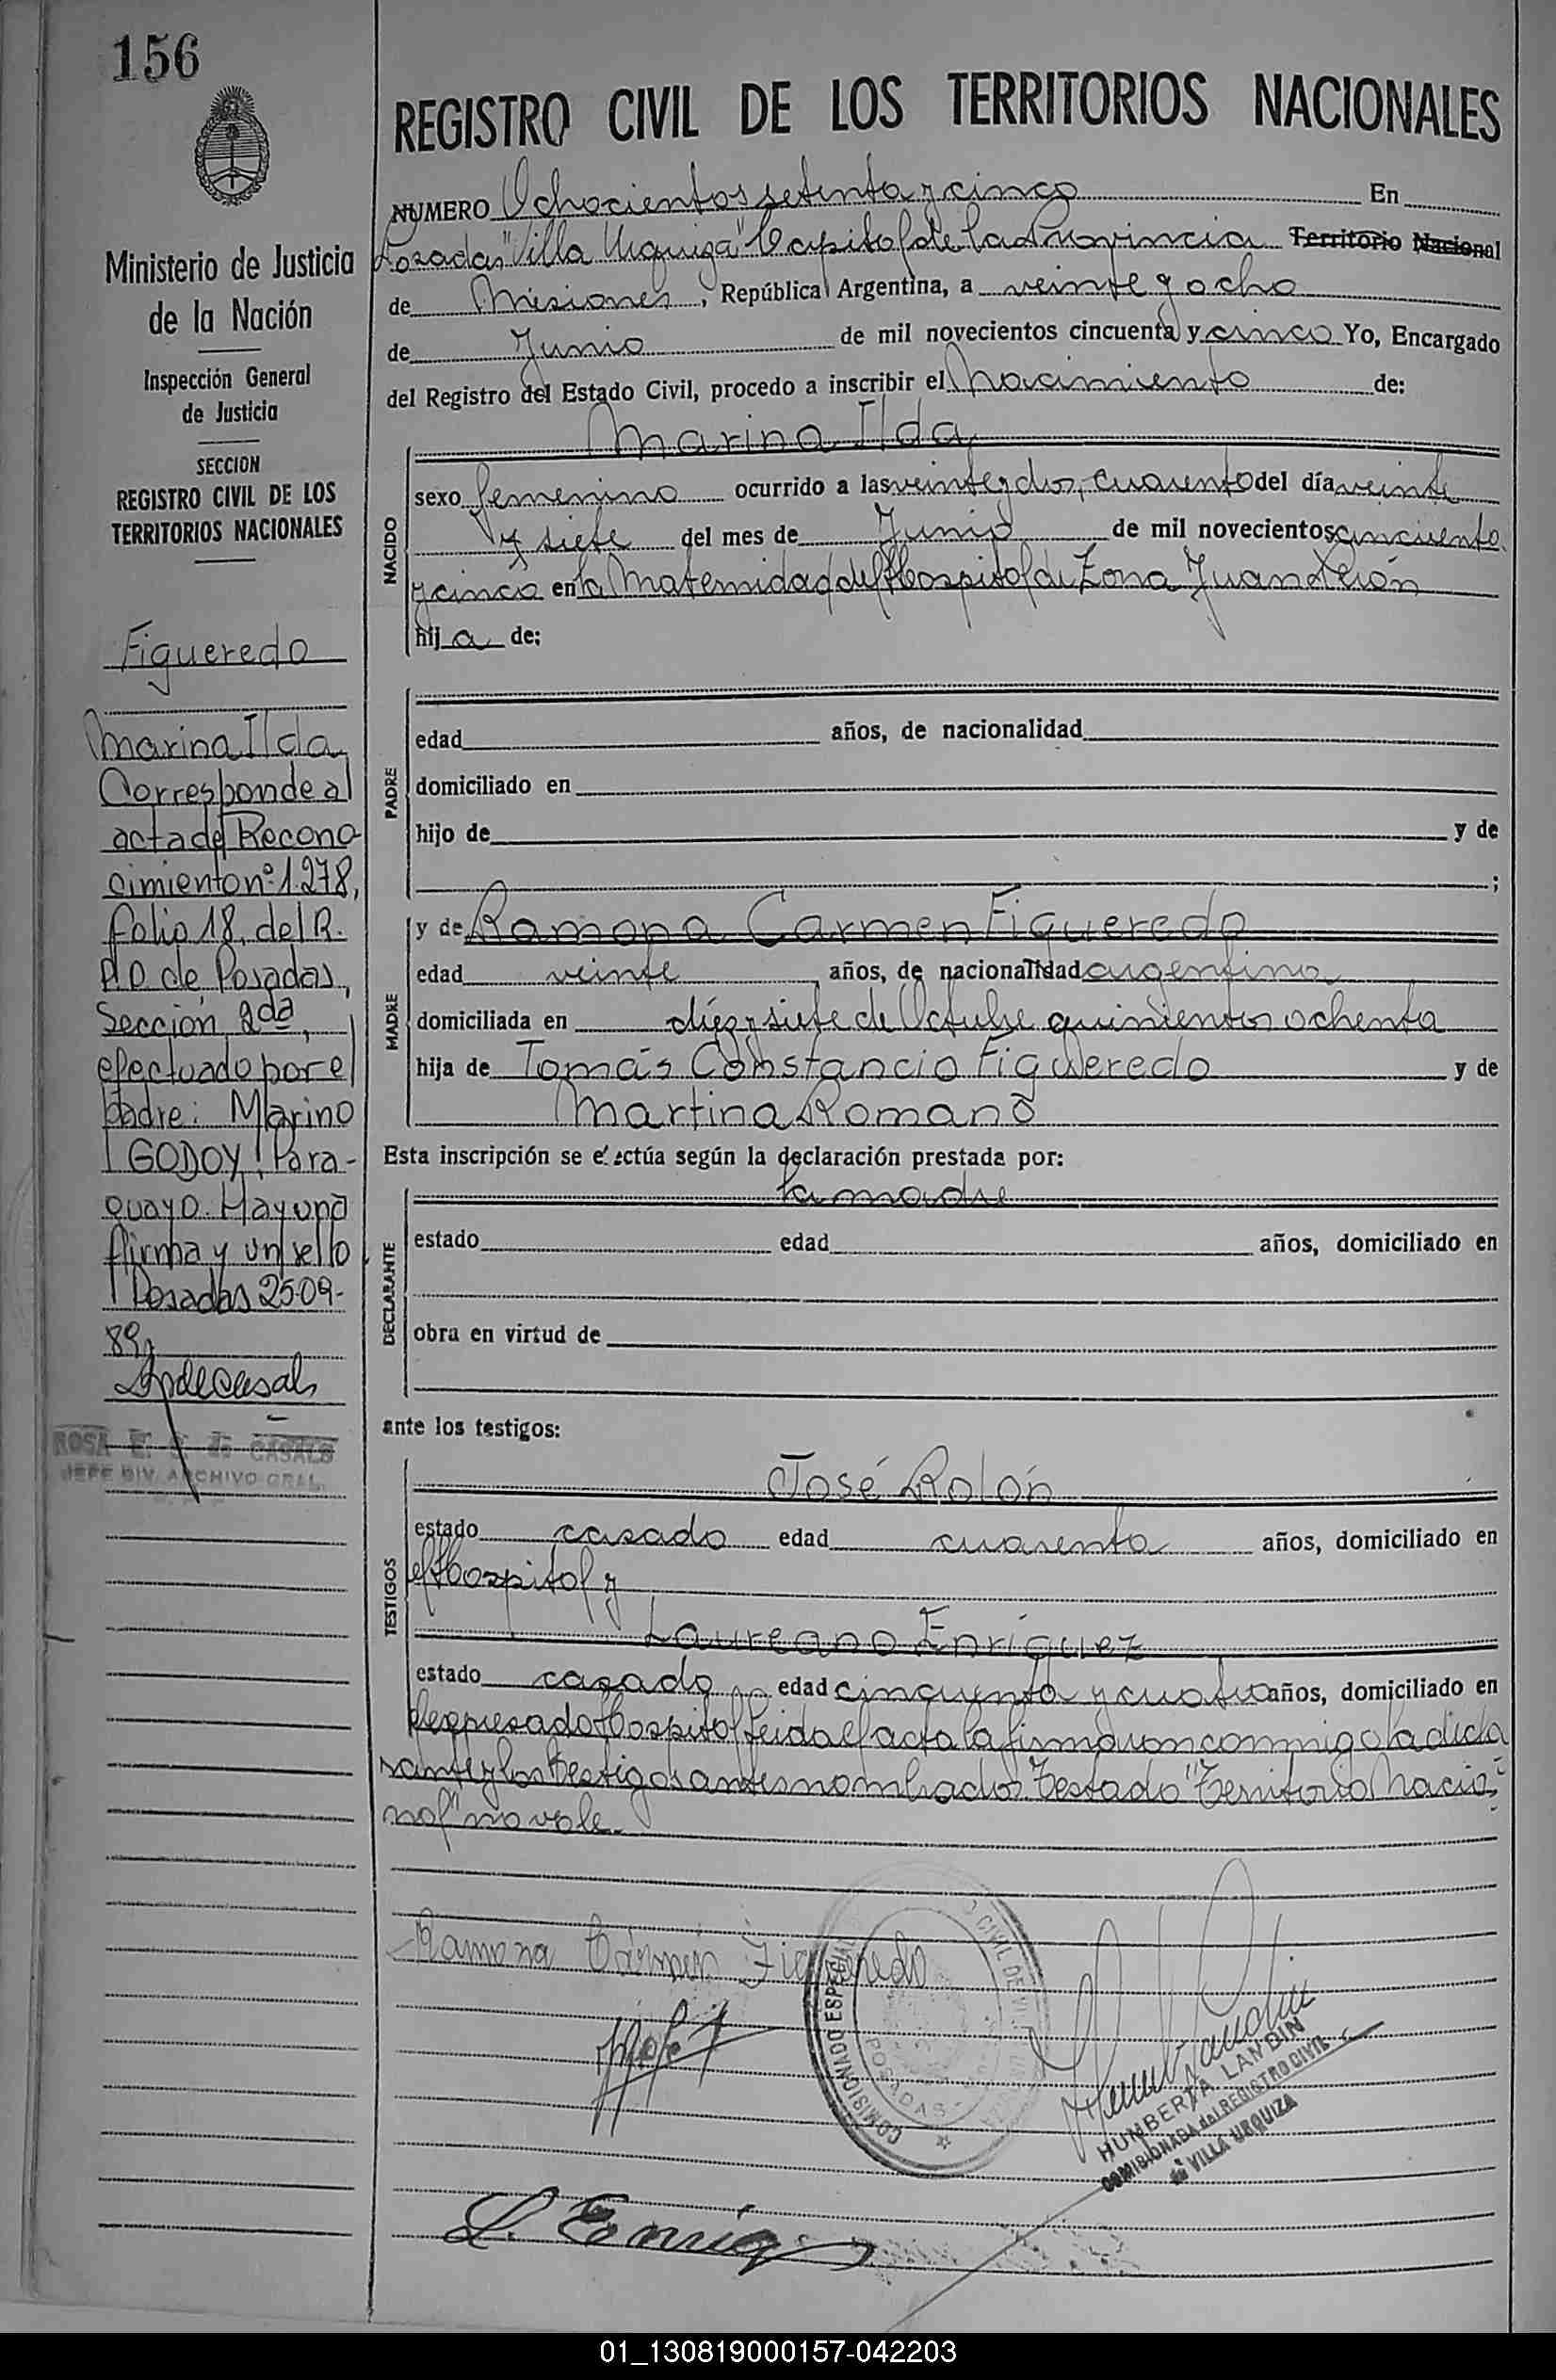 156
Ministerio de Justicia
de la Nación
Inspección General
de Justicia
SECCION
REGISTRO CIVIL DE LOS
TERRITORIOS NACIONALES
Figueredo
Marina Ilda
Corresponde al
acta de Recono
cimiento nº 1.278,
folio 18, del R.
P.D de Posadas,
Sección 2da,
efectuado por el
padre: Marino
GODOY! Para-
guayo. Hay una
firma y un sello
Posadas 25-09-
89
ROSA E. de CASALS
JEFE DIV. ARCHIVO GRAL.
REGISTRO CIVIL DE LOS TERRITORIOS NACIONALES
NUMERO Ochocientos setenta y cinco En
Posadas "Villa Urquiza" Capital de la Provincia Territorio Nacional
de Misiones, República Argentina, a veinte y ocho
de Junio de mil novecientos cincuenta y cinco Yo, Encargado
del Registro del Estado Civil, procedo a inscribir el Nacimiento de:
Marina Ilda
NACIDO
sexo femenino ocurrido a las veinte y dos, cuarenta del día veinte
y siete del mes de Junio de mil novecientos cincuenta
y cinco en la Maternidad del Hospital de Zona Juan Perón
hij a de:
PADRE
edad años, de nacionalidad
domiciliado en
hijo de y de
;
MADRE
y de Ramona Carmen Figueredo
edad veinte años, de nacionalidad argentina
domiciliada en diez y siete de Octubre quinientos ochenta
hija de Tomás Constancio Figueredo y de
Martina Romano
Esta inscripción se efectúa según la declaración prestada por:
DECLARANTE
la madre
estado edad años, domiciliado en
obra en virtud de
ante los testigos:
TESTIGOS
José Rolón
estado casado edad cuarenta años, domiciliado en
el Hospital y
Laureano Enríguez
estado casado edad cincuenta y cuatro años, domiciliado en
el expresado Hospital Leida el acta la firmaron conmigo la decla
rante y los testigos antes nombrados. Testado "Territorio Nacio-
nal" no vale.
Ramona Carmen Figueredo
COMISIONADO ESPECIAL
CIVIL DE
POSADAS
HUMBERTA LANDIN
COMISIONADA del REGISTRO CIVIL
de VILLA URQUIZA
L. Enrig
01_130819000157-042203